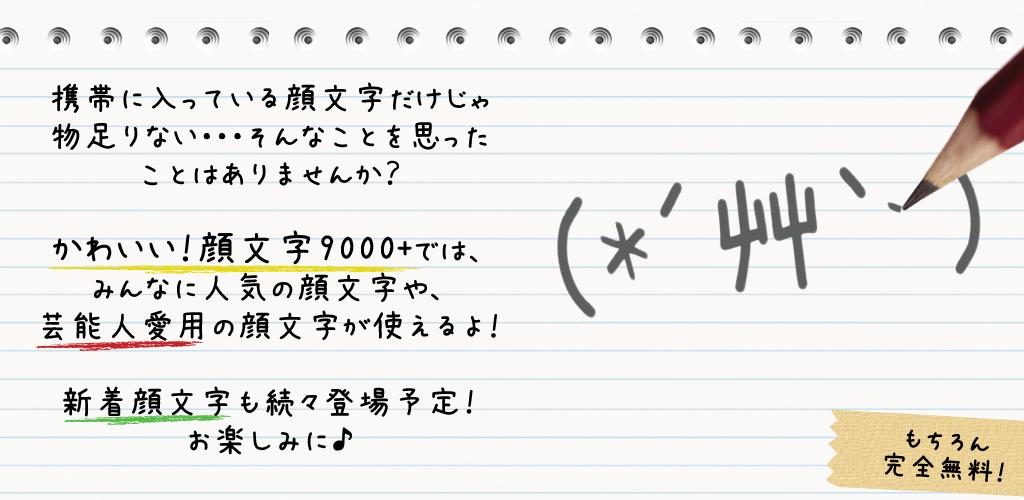 携帯に入っている顔文字だけじゃ
物足りない・・・そんなことを思った
ことはありませんか?
かわいい!顔文字9000+では、
みんなに人気の顔文字や、
芸能人愛用の顔文字が使えるよ!
新着顔文字も続々登場予定!
お楽しみに♪
(*´艸`-)
もちろん
完全無料!